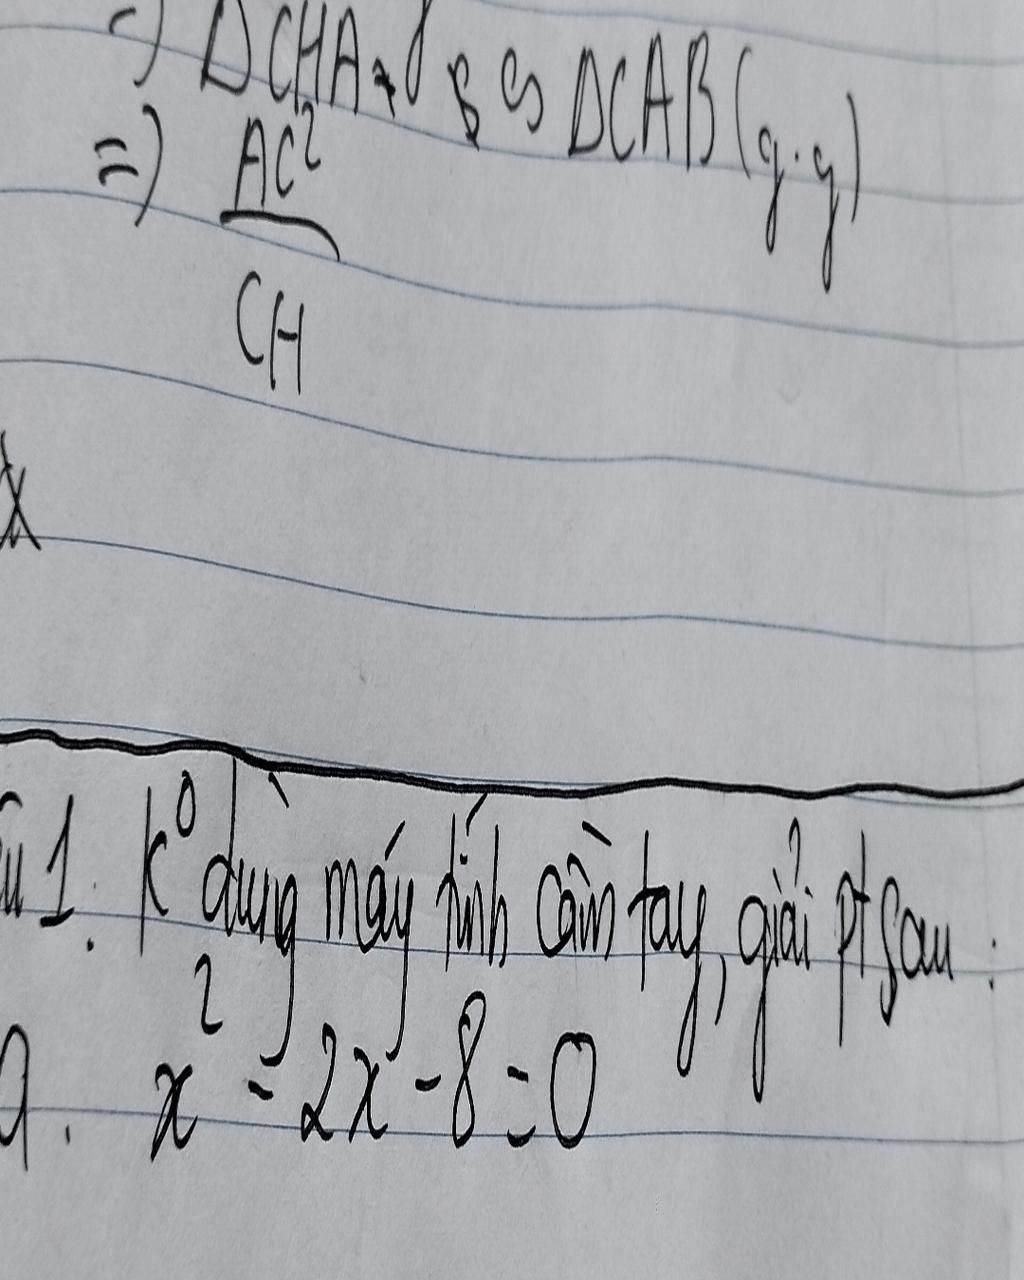 =) ΔCHA ᔕ ΔCAB (g.g)
=) AC²
CH
1. K⁰ dùng máy tính cầm tay, giải pt sau :
a. x² - 2x - 8 = 0